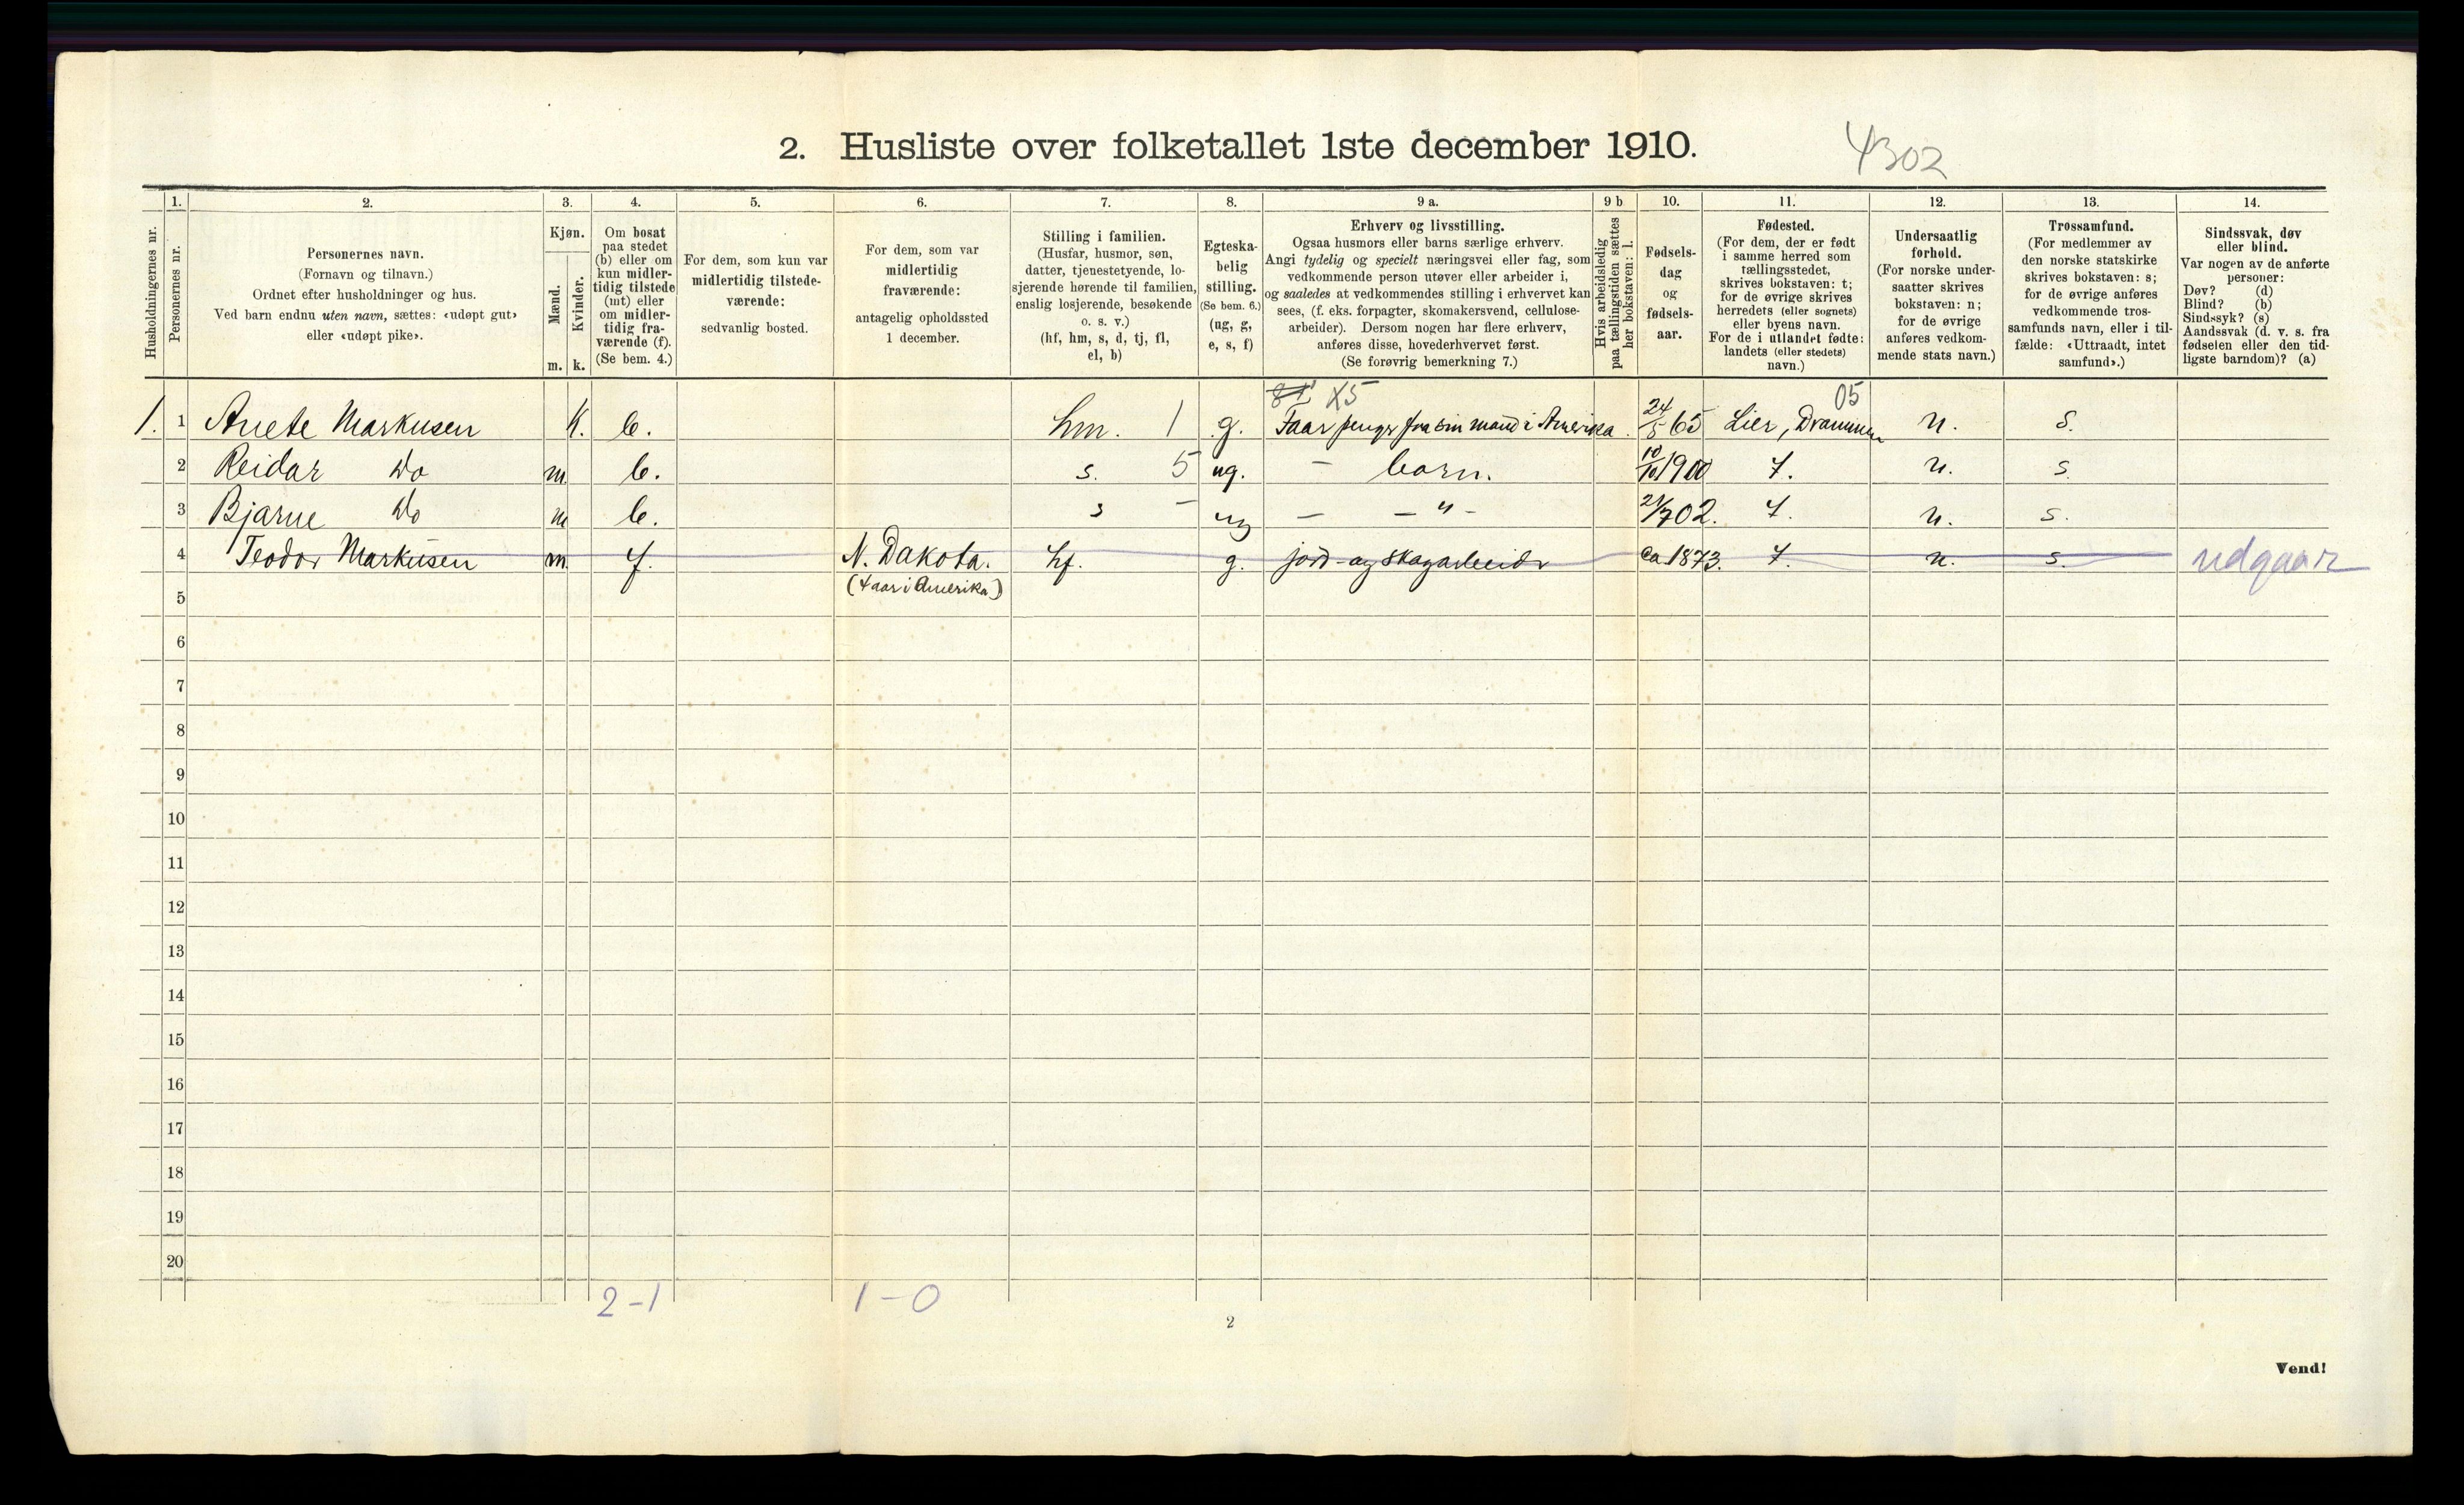 2. Husliste over folketallet 1ste december 1910.
4302
Husholdningernes nr.
1.
Personernes nr.
2.
Personernes navn.
(Fornavn og tilnavn.)
Ordnet efter husholdninger og hus.
Ved barn endnu uten navn, sættes: «udøpt gut»
eller «udøpt pike».
3.
Kjøn.
Mænd.
Kvinder.
m. k.
4.
Om bosat
paa stedet
(b) eller om
kun midler-
tidig tilstede
(mt) eller
om midler-
tidig fra-
værende (f).
(Se bem. 4.)
5.
For dem, som kun var
midlertidig tilstede-
værende:
sedvanlig bosted.
6.
For dem, som var
midlertidig
fraværende:
antagelig opholdssted
1 december.
7.
Stilling i familien.
(Husfar, husmor, søn,
datter, tjenestetyende, lo-
sjerende hørende til familien,
enslig losjerende, besøkende
o. s. v.)
(hf, hm, s, d, tj, fl,
el, b)
8.
Egteska-
belig
stilling.
(Se bem. 6.)
(ug, g,
e, s, f)
9 a.
Erhverv og livsstilling.
Ogsaa husmors eller barns særlige erhverv.
Angi tydelig og specielt næringsvei eller fag, som
vedkommende person utøver eller arbeider i,
og saaledes at vedkommendes stilling i erhvervet kan
sees, (f. eks. forpagter, skomakersvend, cellulose-
arbeider). Dersom nogen har flere erhverv,
anføres disse, hovederhvervet først.
(Se forøvrig bemerkning 7.)
9 b
Hvis arbeidsledig
paa tællingstiden sættes
her bokstaven: l.
10.
Fødsels-
dag
og
fødsels-
aar.
11.
Fødested.
(For dem, der er født
i samme herred som
tællingsstedet,
skrives bokstaven: t;
for de øvrige skrives
herredets (eller sognets)
eller byens navn.
For de i utlandet fødte:
landets (eller stedets)
navn.)
12.
Undersaatlig
forhold.
(For norske under-
saatter skrives
bokstaven: n;
for de øvrige
anføres vedkom-
mende stats navn.)
13.
Trossamfund.
(For medlemmer av
den norske statskirke
skrives bokstaven: s;
for de øvrige anføres
vedkommende tros-
samfunds navn, eller i til-
fælde: «Uttraadt, intet
samfund».)
14.
Sindssvak, døv
eller blind.
Var nogen av de anførte
personer:
Døv? (d)
Blind? (b)
Sindssyk? (s)
Aandssvak (d. v. s. fra
fødselen eller den tid-
ligste barndom)? (a)
X5 05
1. 1 Anete Markusen K. b. hm. 1 g. Faar penger fra sin mand i Amerika. 24/5 65 Lier, Drammen n. s.
2 Reidar Do m. b. s. 5 ug. - barn. 10/10 1900 t. n. s.
3 Bjarne Do m b. s - ug - - " - 21/7 02. t. n. s.
4 Teodor Markusen m. f. N. Dakota. hf. g. jord- og skogarbeider ca 1873. t. n. s. udgaar
(4 aar i Amerika)
5
6
7
8
9
10
11
12
13
14
15
16
17
18
19
20
2-1 1-0
2
Vend!